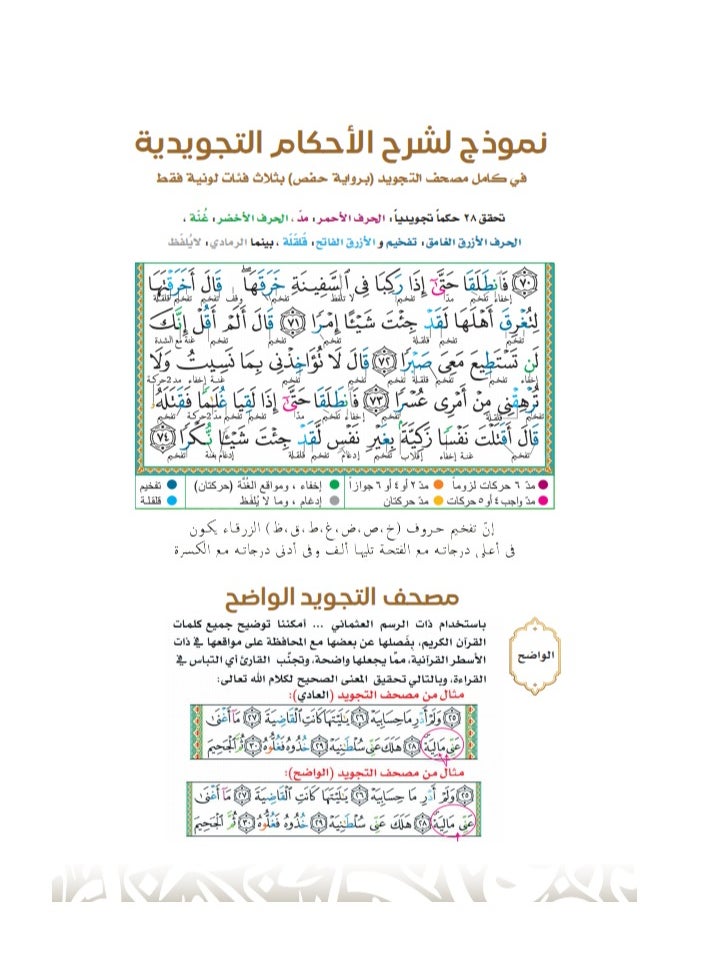 نموذج لشرح الأحكام التجويدية
في كامل مصحف التجويد (برواية حفص) بثلاث فئات لونية فقط
تحقق ٢٨ حكماً تجويدياً: الحرف الأحمر: مدّ، الحرف الأخضر: غُنّة،
الحرف الأزرق الغامق: تفخيم و الأزرق الفاتح: قلقلة، بينما الرمادي: لا يُلفَظ
٧٠ فَٱنطَلَقَا حَتَّىٰٓ إِذَا رَكِبَا فِى ٱلسَّفِينَةِ خَرَقَهَا ۖ قَالَ أَخَرَقْتَهَا
لِتُغْرِقَ أَهْلَهَا لَقَدْ جِئْتَ شَيْـًٔا إِمْرًا ٧١ قَالَ أَلَمْ أَقُلْ إِنَّكَ
لَن تَسْتَطِيعَ مَعِىَ صَبْرًا ٧٢ قَالَ لَا تُؤَاخِذْنِى بِمَا نَسِيتُ وَلَا
تُرْهِقْنِى مِنْ أَمْرِى عُسْرًا ٧٣ فَٱنطَلَقَا حَتَّىٰٓ إِذَا لَقِيَا غُلَٰمًا فَقَتَلَهُۥ
قَالَ أَقَتَلْتَ نَفْسًا زَكِيَّةًۢ بِغَيْرِ نَفْسٍ لَّقَدْ جِئْتَ شَيْـًٔا نُّكْرًا ٧٤
مدّ ٦ حركات لزوماً مدّ ٢ أو ٤ أو ٦ جوازاً إخفاء، ومواقع الغُنَّة (حركتان) تفخيم
مدّ واجب ٤ أو ٥ حركات مدّ حركتان إدغام، وما لا يُلفَظ قلقلة
إنّ تفخيم حروف (خ،ص،ض،غ،ط،ق،ظ) الزرقاء يكون
في أعلى درجاته مع الفتحة تليها ألف وفي أدنى درجاته مع الكسرة
مصحف التجويد الواضح
الواضح
باستخدام ذات الرسم العثماني ... أمكننا توضيح جميع كلمات
القرآن الكريم، بفَصلها عن بعضها مع المحافظة على مواقعها في ذات
الأسطر القرآنية، ممّا يجعلها واضحة، وتجنّب القارئ أي التباس في
القراءة، وبالتالي تحقيق المعنى الصحيح لكلام الله تعالى:
مثال من مصحف التجويد (العادي):
٢٥ وَلَمْ أَدْرِ مَا حِسَابِيَهْ ٢٦ يَٰلَيْتَهَا كَانَتِ ٱلْقَاضِيَةَ ٢٧ مَآ أَغْنَىٰ
عَنِّى مَالِيَهْ ٢٨ هَلَكَ عَنِّى سُلْطَٰنِيَهْ ٢٩ خُذُوهُ فَغُلُّوهُ ٣٠ ثُمَّ ٱلْجَحِيمَ
مثال من مصحف التجويد (الواضح):
٢٥ وَلَمْ أَدْرِ مَا حِسَابِيَهْ ٢٦ يَٰلَيْتَهَا كَانَتِ ٱلْقَاضِيَةَ ٢٧ مَآ أَغْنَىٰ
عَنِّى مَالِيَهْ ٢٨ هَلَكَ عَنِّى سُلْطَٰنِيَهْ ٢٩ خُذُوهُ فَغُلُّوهُ ٣٠ ثُمَّ ٱلْجَحِيمَ